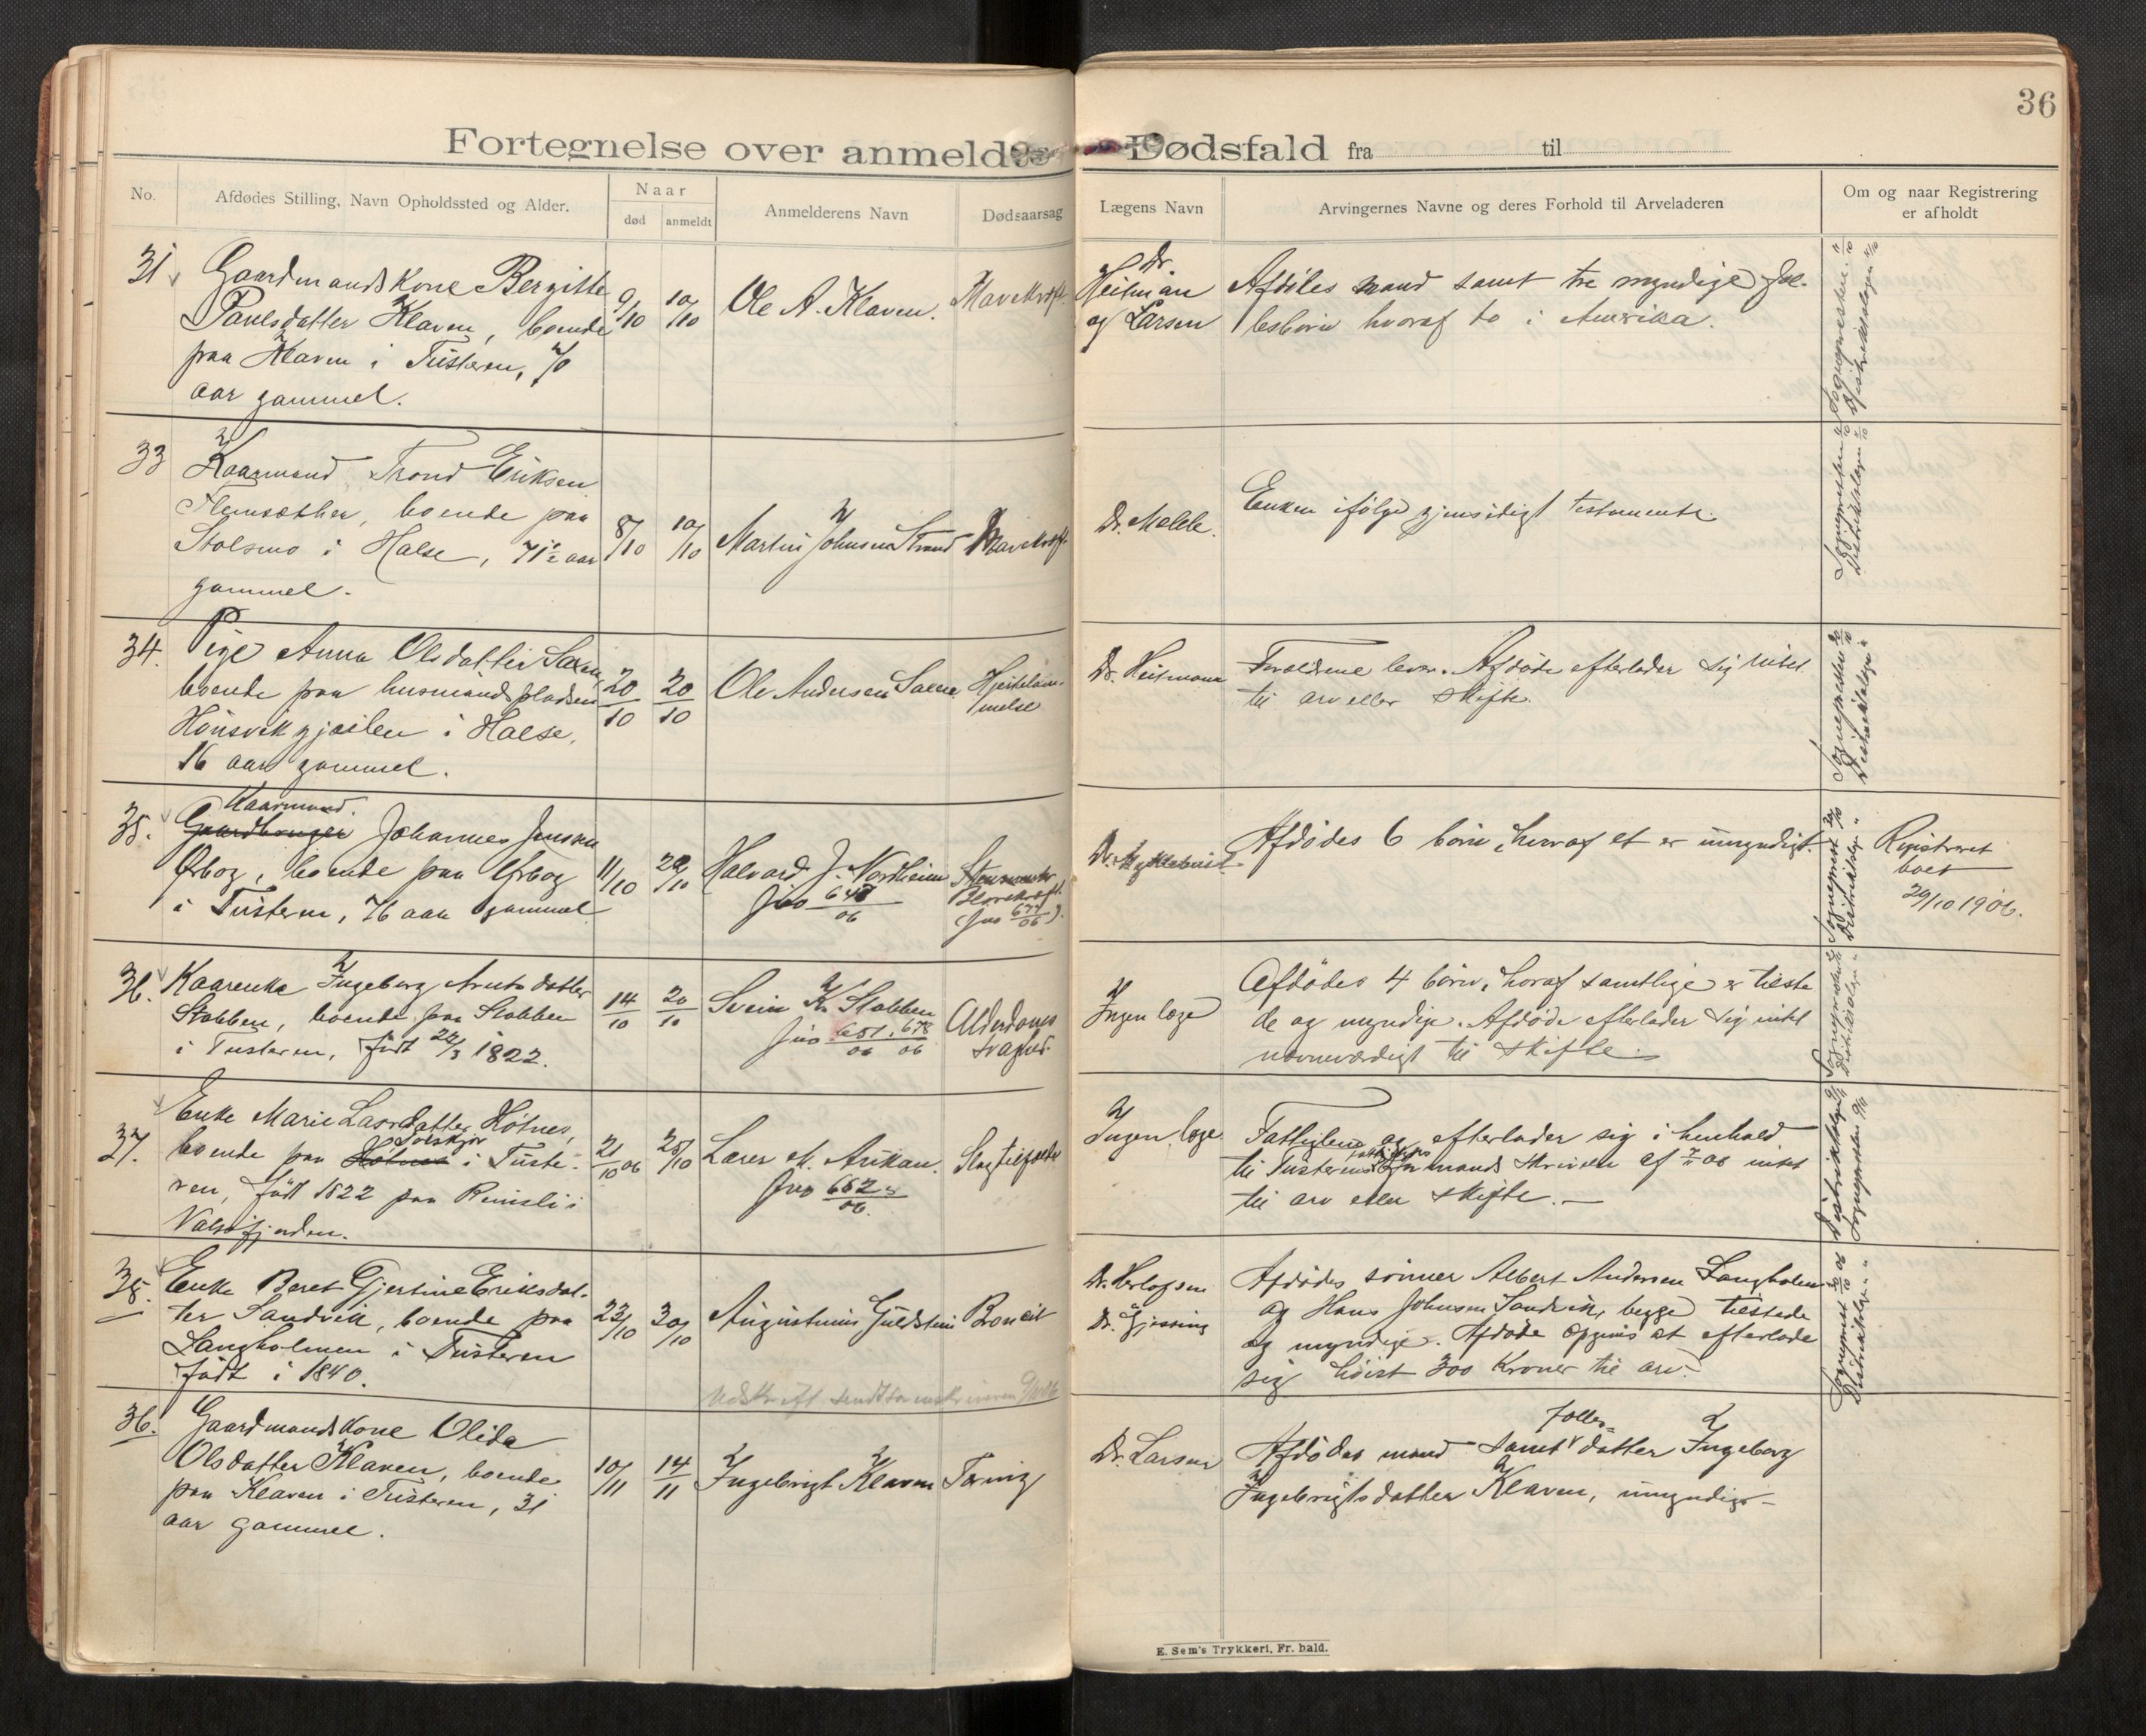 36
Fortegnelse over anmeldte Dødsfald fra til
No.
Afdødes Stilling, Navn Opholdssted og Alder.
Naar
død
anmeldt
Anmelderens Navn
Dødsaarsag
Lægens Navn
Arvingernes Navne og deres Forhold til Arveladeren
Om og naar Registrering
er afholdt
31
Gaardmandskone Bergitte
Paulsdatter Klaven, boende
paa Klaven i Tusteren, 70
aar gammel.
9/10
10/10
Ole A. Klaven.
Mavekræft.
Dr.
Heitman
og Larsen
Afdødes mand samt tre myndige fæl-
lesbørn hvoraf to i Amerika.
Sognepresten 11/10
Distriktslægen 11/10
33
Kaarmand Trond Eriksen
Flemsæther, boende paa
Stolsmo i Halse, 71½ aar
gammel.
8/10
10/10
Martin Johnsen Strand
Mavekræft.
Dr. Melbb.
Enken ifølge gjensidigt testamente.
Sognepresten 11/10
Distriktslægen 11/10
34.
Pige Anna Olsdatter Saxen,
boende paa husmandspladsen
Hønsvikgjeilen i Halse,
16 aar gammel.
20/10
20/10
Ole Andersen Saxen
Hjertelam-
melse
Dr. Heitmann
Forældrene lever. Afdøde efterlader sig intet
til arv eller skifte.
Sognepresten 20/10
Distriktslægen "
35.
Kaarmand.
Gaardbruger Johannes Jensen
Ørbog, boende paa Ørbog
i Tusteren, 76 aar gammel
11/10
20/10
Halvard J. Nordheim
Jno 648/06
Blærekræft.
(Jno 677/06).
Afdødes 6 børn, hvoraf et er umyndigt.
Distriktslægen "
Registreret
boet
29/10 1906.
36.
Kaarenke Ingeborg Arntsdatter
Stabben, boende paa Stabben
i Tusteren, født 24/3 1822.
14/10
20/10
Svein K. Stabben
Jno 651/06, 678/06
Alderdoms
svaghed.
Ingen læge
Afdødes 4 børn, hvoraf samtlige er tilste
de og myndige. Afdøde efterlader sig intet
nævneværdigt til skifte.
37.
Enke Marie Larsdatter Holnes,
Solskjør
boende paa Holnes i Tuste-
ren, født 1822 paa Rimsli i
Valsøfjorden.
21/10 06
25/10
Lærer M. Arikan.
Jno 662/06.
Slagtilfælde
Ingen læge.
Fattiglem og efterlader sig i henhold
til Tusterens fattigfor mands skrivelse af 7/11 06 intet
til arv eller skifte. —
38.
Enke Beret Gjertine Eriksdat-
ter Sandvik, boende paa
Langholmen i Tusteren
født i 1840.
23/10
30/10
Augustinus Guldstein
Dr. Herlofsen
Dr. Gjessing
Afdødes sønner Albert Andersen Langholmen
og Hans Johnsen Sandvik, begge tilstede
og myndige. Afdøde opgives at efterlade
sig høist 300 Kroner til arv.
Sognepræst 30/10 06
Distriktslægen " "
36.
Gaardmandskone Olida
Olsdatter Klaven, boende
paa Klaven i Tusteren, 31
aar gammel.
10/11
14/11
Ingebrigt Klaven
Tæring
Dr. Larsen
Afdødes mand samt fælles datter Ingeborg
Ingebrigtsdatter Klaven, umyndig. —
E. Sem's Trykkeri, Fr. hald.